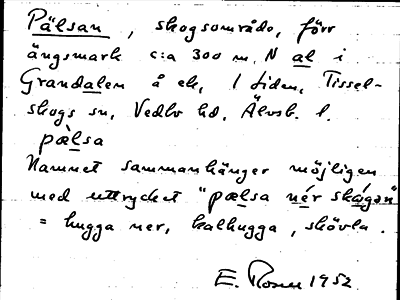 Pälsan, skogsområde, förr
ängsmark c:a 300 m. N al i
Grandalen å ek, 1 Liden, Tissel-
skogs sn, Vedbo hd, Älvsb. l.
pælsa
Namnet sammanhänger möjligen
med uttrycket "pælsa nér skógen"
= hugga ner, kalhugga, skövla.
E. Rosén 1952